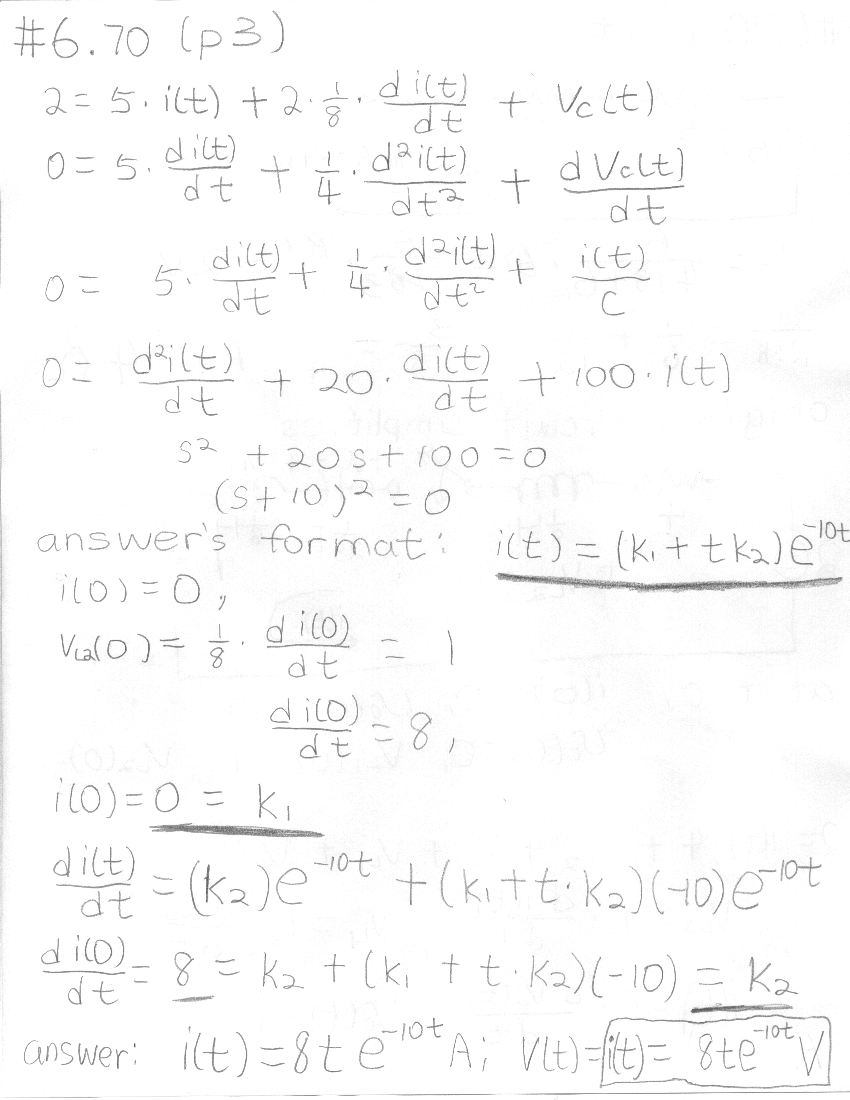 #6.70 (p3)
2 = 5 · i(t) + 2 · 1/8 · d i(t)/dt + Vc(t)
0 = 5 · d i(t)/dt + 1/4 · d²i(t)/dt² + d Vc(t)/dt
0 = 5 · di(t)/dt + 1/4 · d²i(t)/dt² + i(t)/C
0 = d²i(t)/dt + 20 · di(t)/dt + 100 · i(t)
s² + 20s + 100 = 0
(s+10)² = 0
answer's format: i(t) = (k₁ + tk₂)e^-10t
i(0) = 0,
VL2(0) = 1/8 · d i(0)/dt = 1
d i(0)/dt = 8,
i(0) = 0 = k₁
d i(t)/dt = (k₂)e^-10t + (k₁ + t·k₂)(-10)e^-10t
d i(0)/dt = 8 = k₂ + (k₁ + t·k₂)(-10) = k₂
answer: i(t) = 8t e^-10t A; V(t) = i(t) = 8te^-10t V